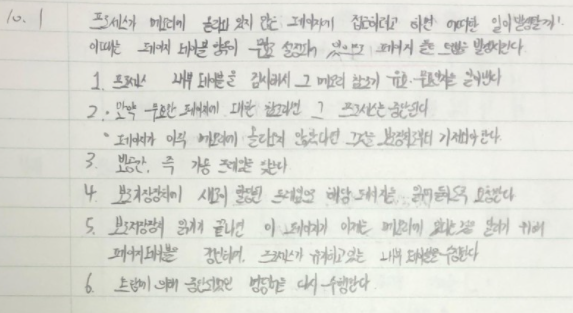 10. 1 프로세스가 메모리에 올라와 있지 않은 페이지에 접근하려고 하면 어떠한 일이 발생할까?
이때는 페이지 테이블 항목이 무효로 설정되어 있으므로 페이지 폴트 트랩을 발생시킨다.
1. 프로세스 내부 테이블을 검사해서 그 메모리 참조가 유효·무효인지를 알아낸다
2. · 만약 무효한 페이지에 대한 참조라면 그 프로세스는 중단된다
· 페이지가 아직 메모리에 올라오지 않았다면 그것을 보조장치로부터 가져와야 한다.
3 빈공간, 즉 가용 프레임을 찾는다
4. 보조저장장치에 새로이 할당된 프레임으로 해당 페이지를 읽어 들이도록 요청한다
5. 보조저장장치 읽기가 끝나면 이 페이지가 이제는 메모리에 있다는 것을 알리기 위해
페이지 테이블을 갱신하며, 프로세스가 유지하고 있는 내부 테이블을 수정한다
6. 트랩에 의해 중단되었던 명령어를 다시 수행한다.